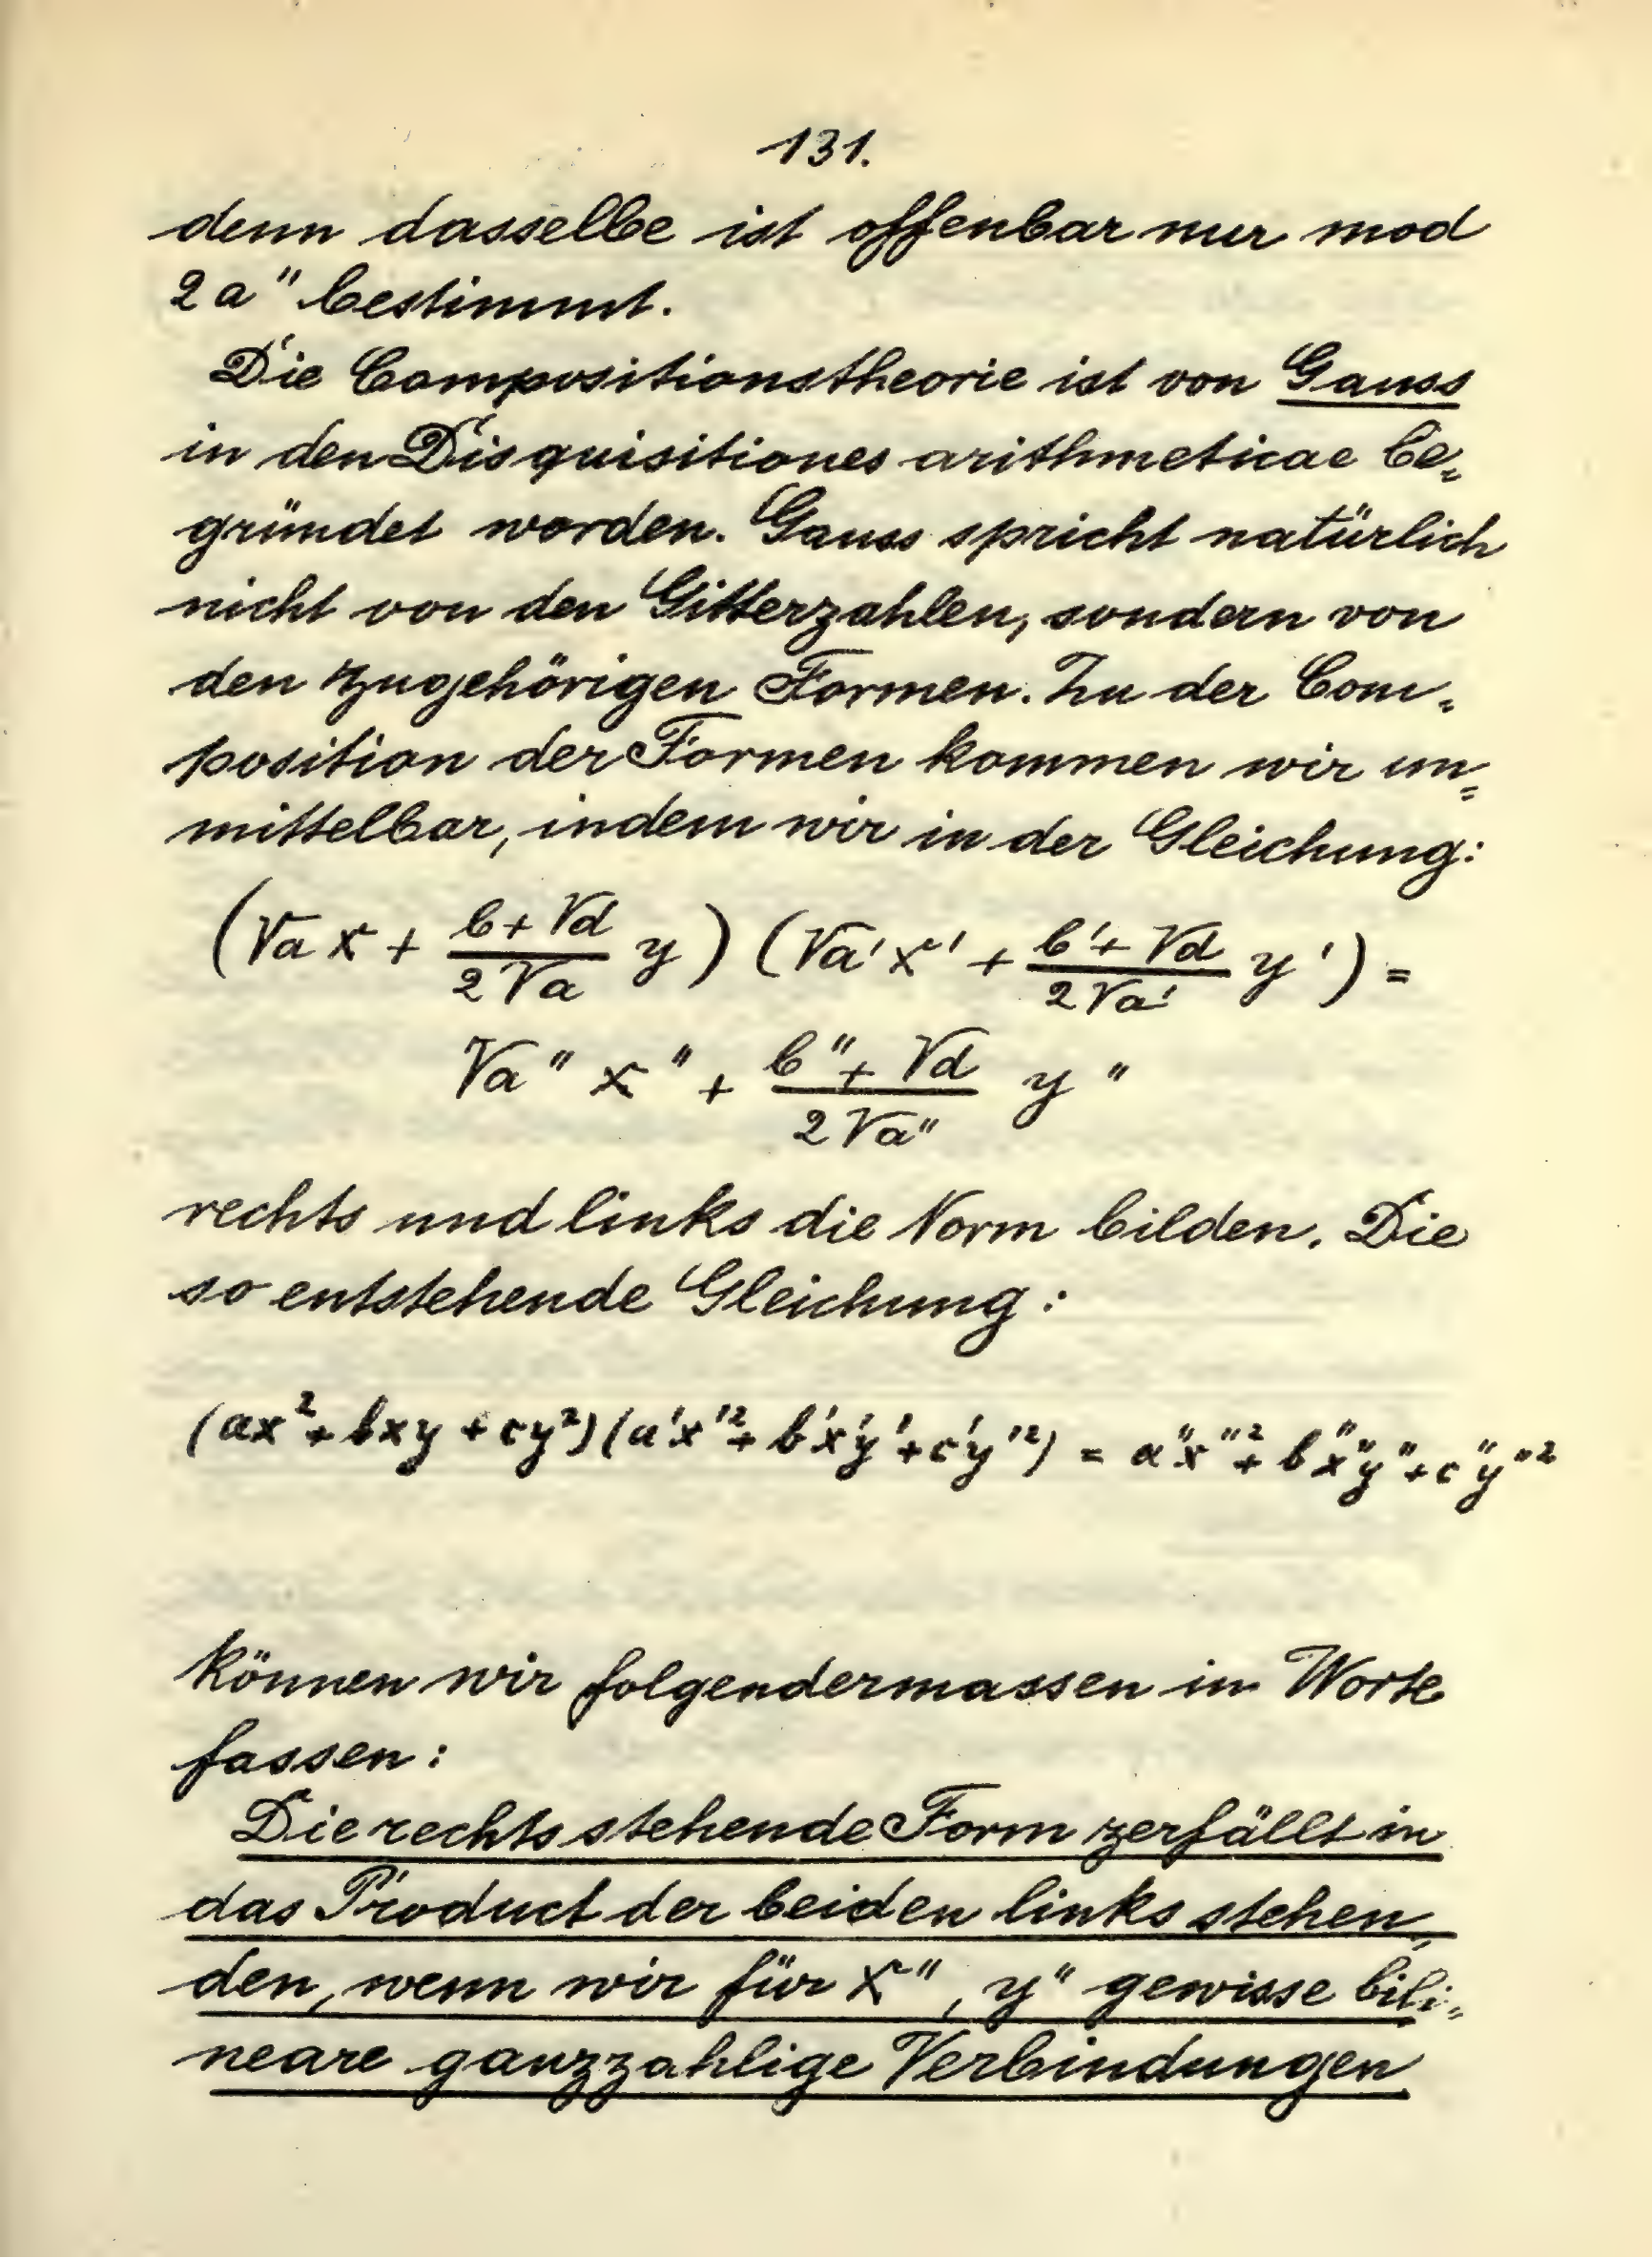 131.
denn dasselbe ist offenbar nur mod
2a" bestimmt.
Die Compositionstheorie ist von Gauss
in den Disquisitiones arithmeticae be-
gründet worden. Gauss spricht natürlich
nicht von den Gitterzahlen, sondern von
den zugehörigen Formen. Zu der Com-
position der Formen kommen wir un-
mittelbar, indem wir in der Gleichung:
(√a x + (b + √d)/(2√a) y) (√a' x' + (b' + √d)/(2√a') y') =
√a" x" + (b" + √d)/(2√a") y"
rechts und links die Norm bilden. Die
so entstehende Gleichung:
(ax² + bxy + cy²)(a'x'² + b'x'y' + c'y'²) = a"x"² + b"x"y" + c"y"²
können wir folgendermassen in Worte
fassen:
Die rechts stehende Form zerfällt in
das Product der beiden links stehen-
den, wenn wir für x", y" gewisse bili-
neare ganzzahlige Verbindungen